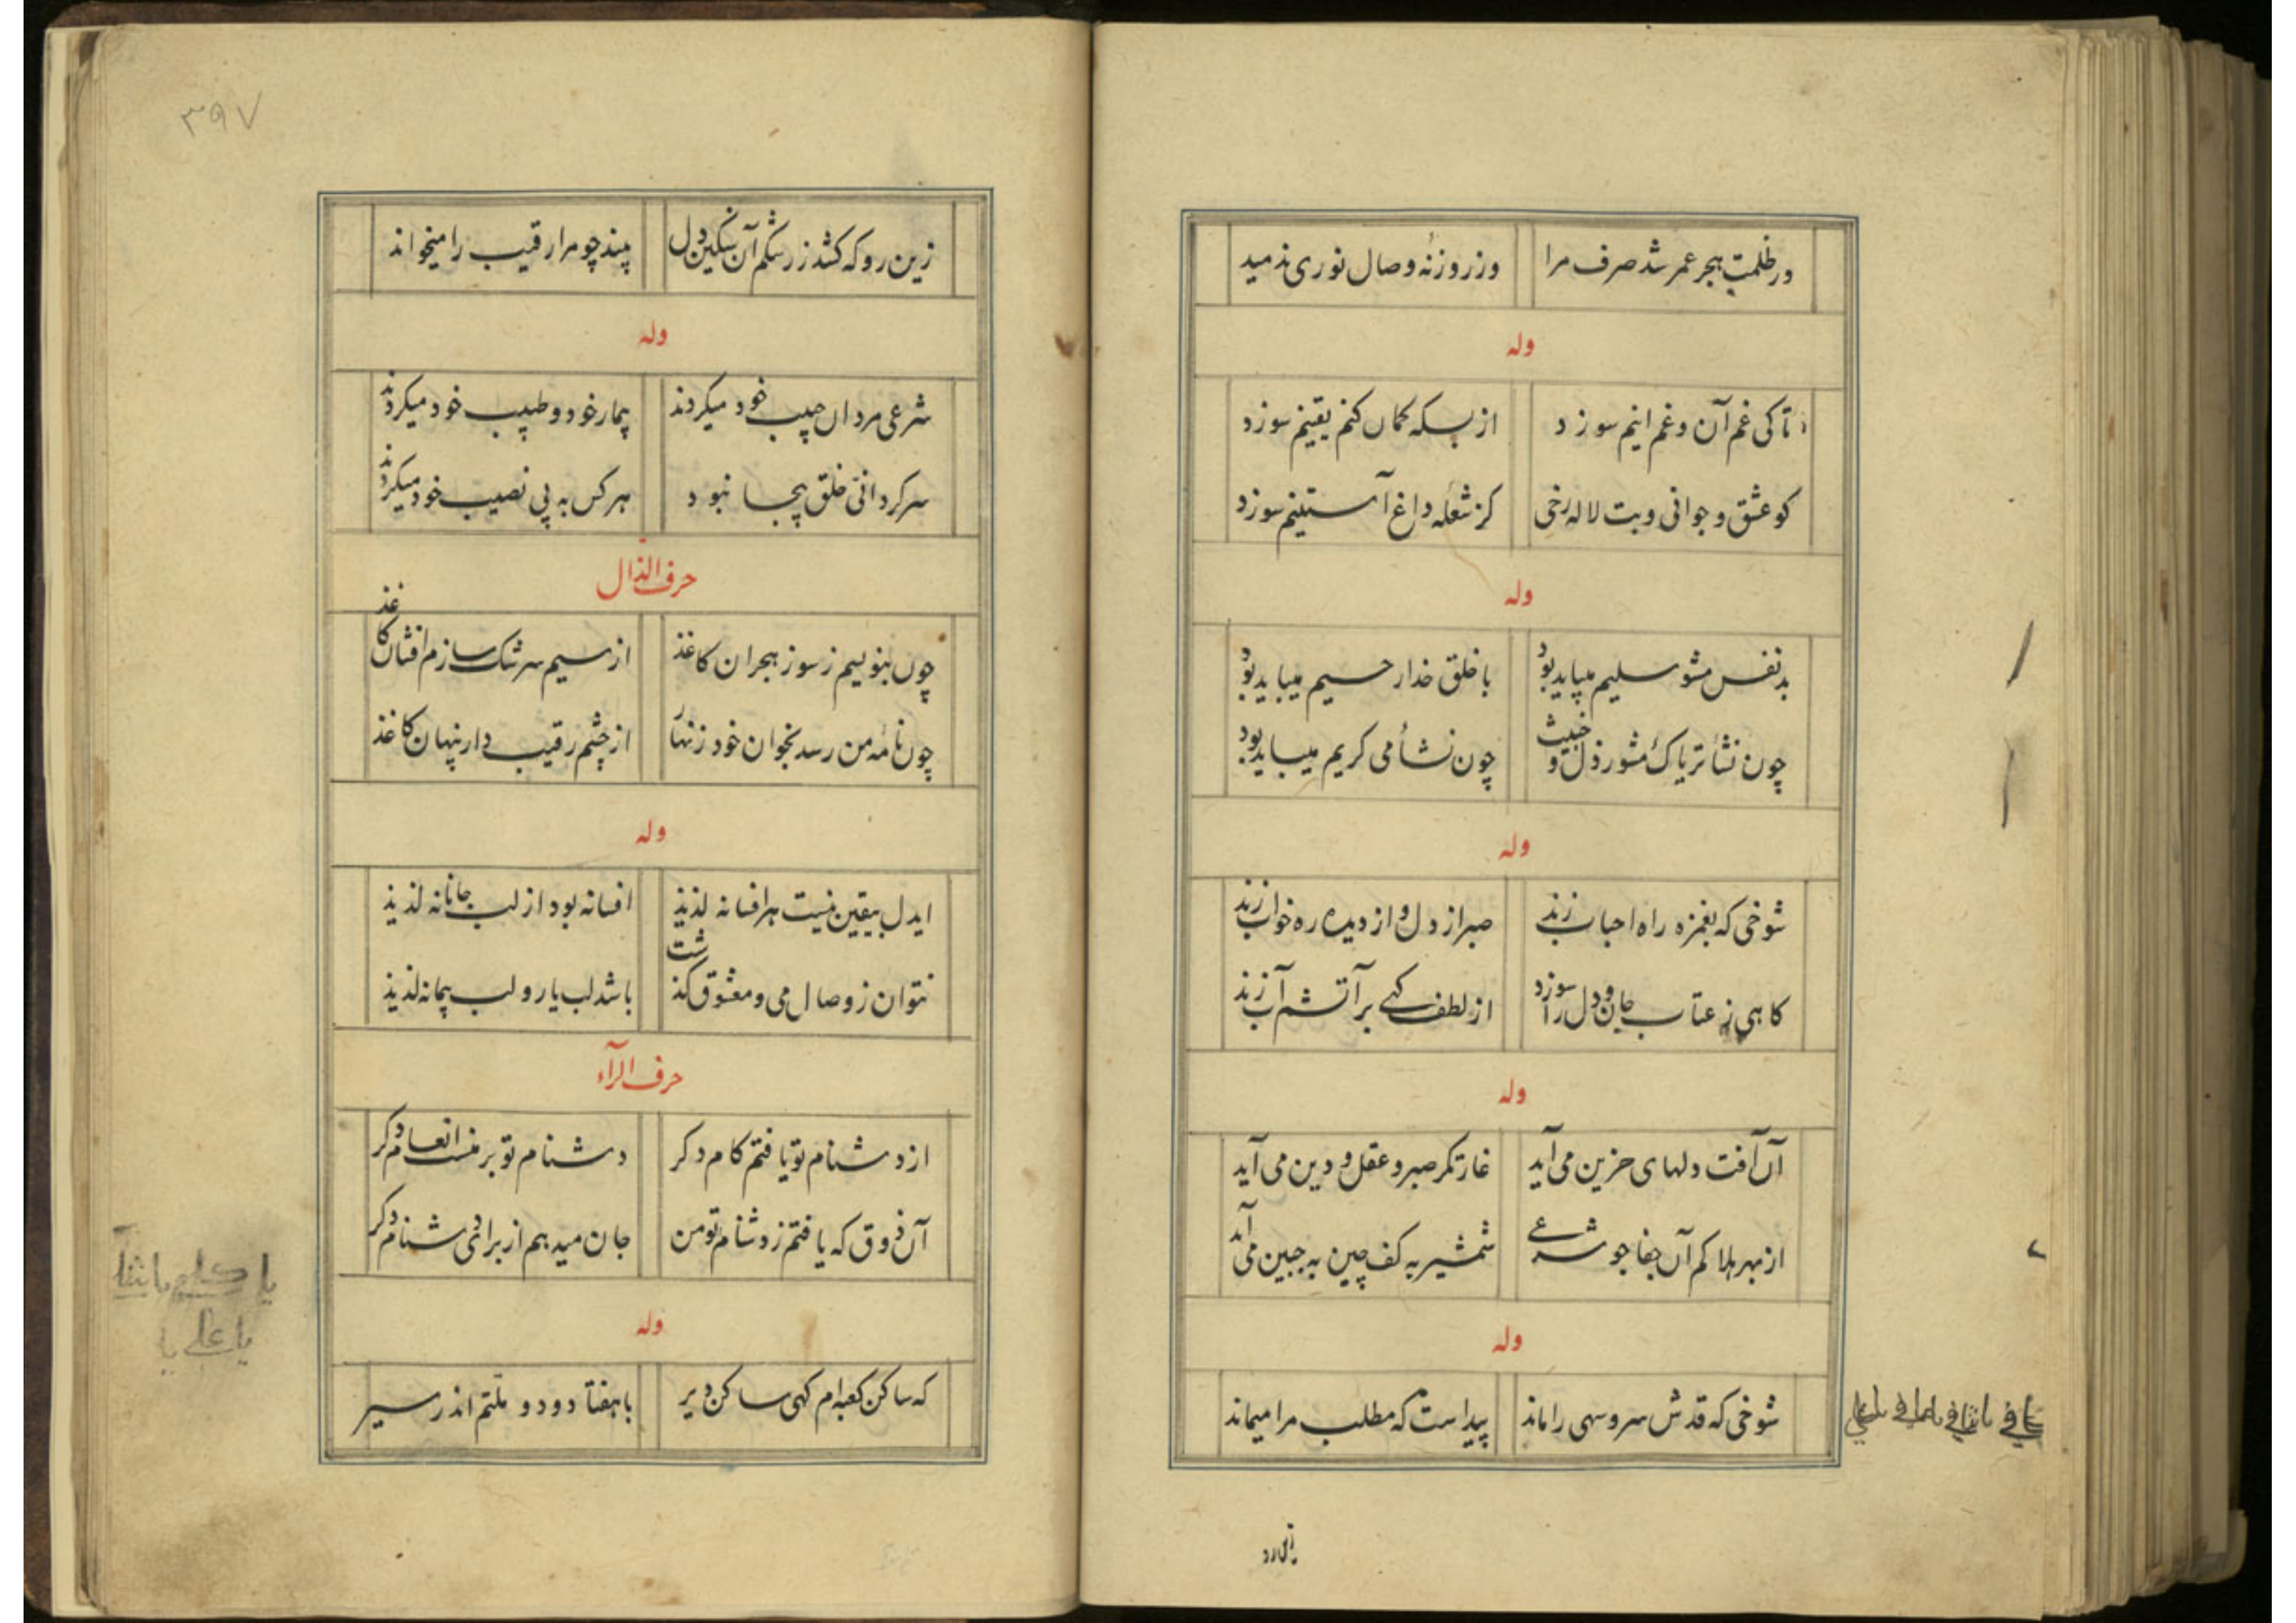 در ظلمت هجر عمر شد صرف مرا وز روزنهٔ وصال نوری ندمید
وله
تا کی غم آن و غم اینم سوزد از بسکه کمان کنم یقینم سوزد
کو عشق و جوانی و بت لاله رخی کز شعله داغ آستینم سوزد
وله
بد نفس مشو سلیم میباید بود با خلق خدا رحیم میباید بود
چون نشأ تریاک مشو رذل و خبیث چون نشأ می کریم میباید بود
وله
شوخی که بغمزه راه احباب زند صبر از دل و از دیده ره خواب زند
کاهی ز عتاب جان و دل را سوزد از لطف کهی بر آتشم آب زند
وله
آن آفت دلهای حزین می آید غارتکر صبر و عقل و دین می آید
از بهر هلاکم آن جفا جو شرعی شمشیر به کف چین به جبین می آید
وله
شوخی که قدش سرو سهی را ماند پیداست که مطلب مرا میماند
زین رو
۳۹۷
زین رو که کشد ز رشکم آن سنکین دل بیند چو مرا رقیب را میخواند
وله
شرعی مردان حبیب خود میکردند بیمار خود و طبیب خود میکردند
سرکردانی خلق بیجا نبود هر کس به پی نصیب خود میکردند
حرف الذال
چون بنویسم ز سوز هجران کاغذ از سیم سرشک سازم افشان کاغذ
چون نامهٔ من رسد بخوان خود زنهار از چشم رقیب دار پنهان کاغذ
وله
ایدل بیقین نیست هر افسانه لذیذ افسانه بود از لب جانانه لذیذ
نتوان ز وصال می و معشوق کذشت باشد لب یار و لب پیمانه لذیذ
حرف الرآء
از دشنام تو یافتم کام دکر دشنام تو بر منست انعام دکر
آن ذوق که یافتم ز دشنام تو من جان میدهم از برای دشنام دکر
وله
که ساکن کعبه ام کهی ساکن دیر با هفتاد و دو ملتم اندر سیر